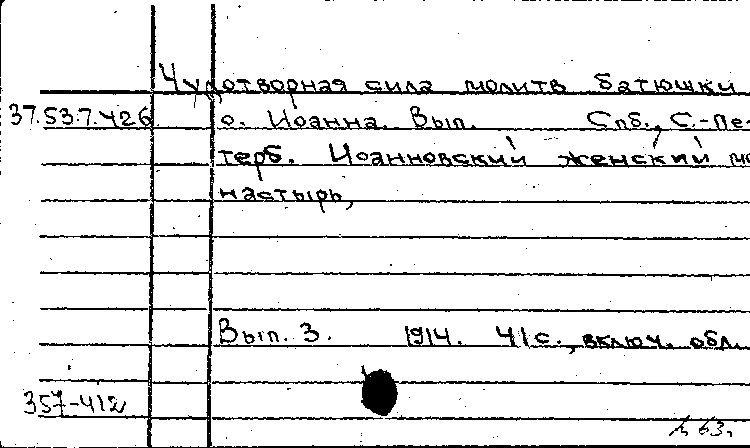 Чудотворная сила молитв батюшки
37.53.7.426 о. Иоанна. Вып. Спб., С.-Пе-
терб. Иоанновский женский мо
настырь,
Вып. 3. 1914. 41 с., включ. обл.
357-412
63г